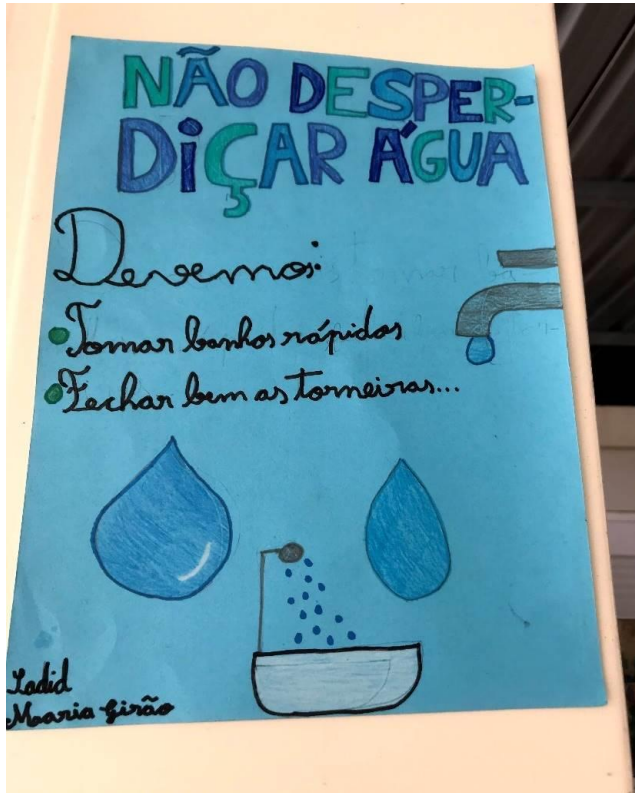 NÃO DESPER-
DiÇAR ÁGUA
Devemos:
Tomar banhos rápidos
Fechar bem as torneiras...
Yadid
Maaria Girão